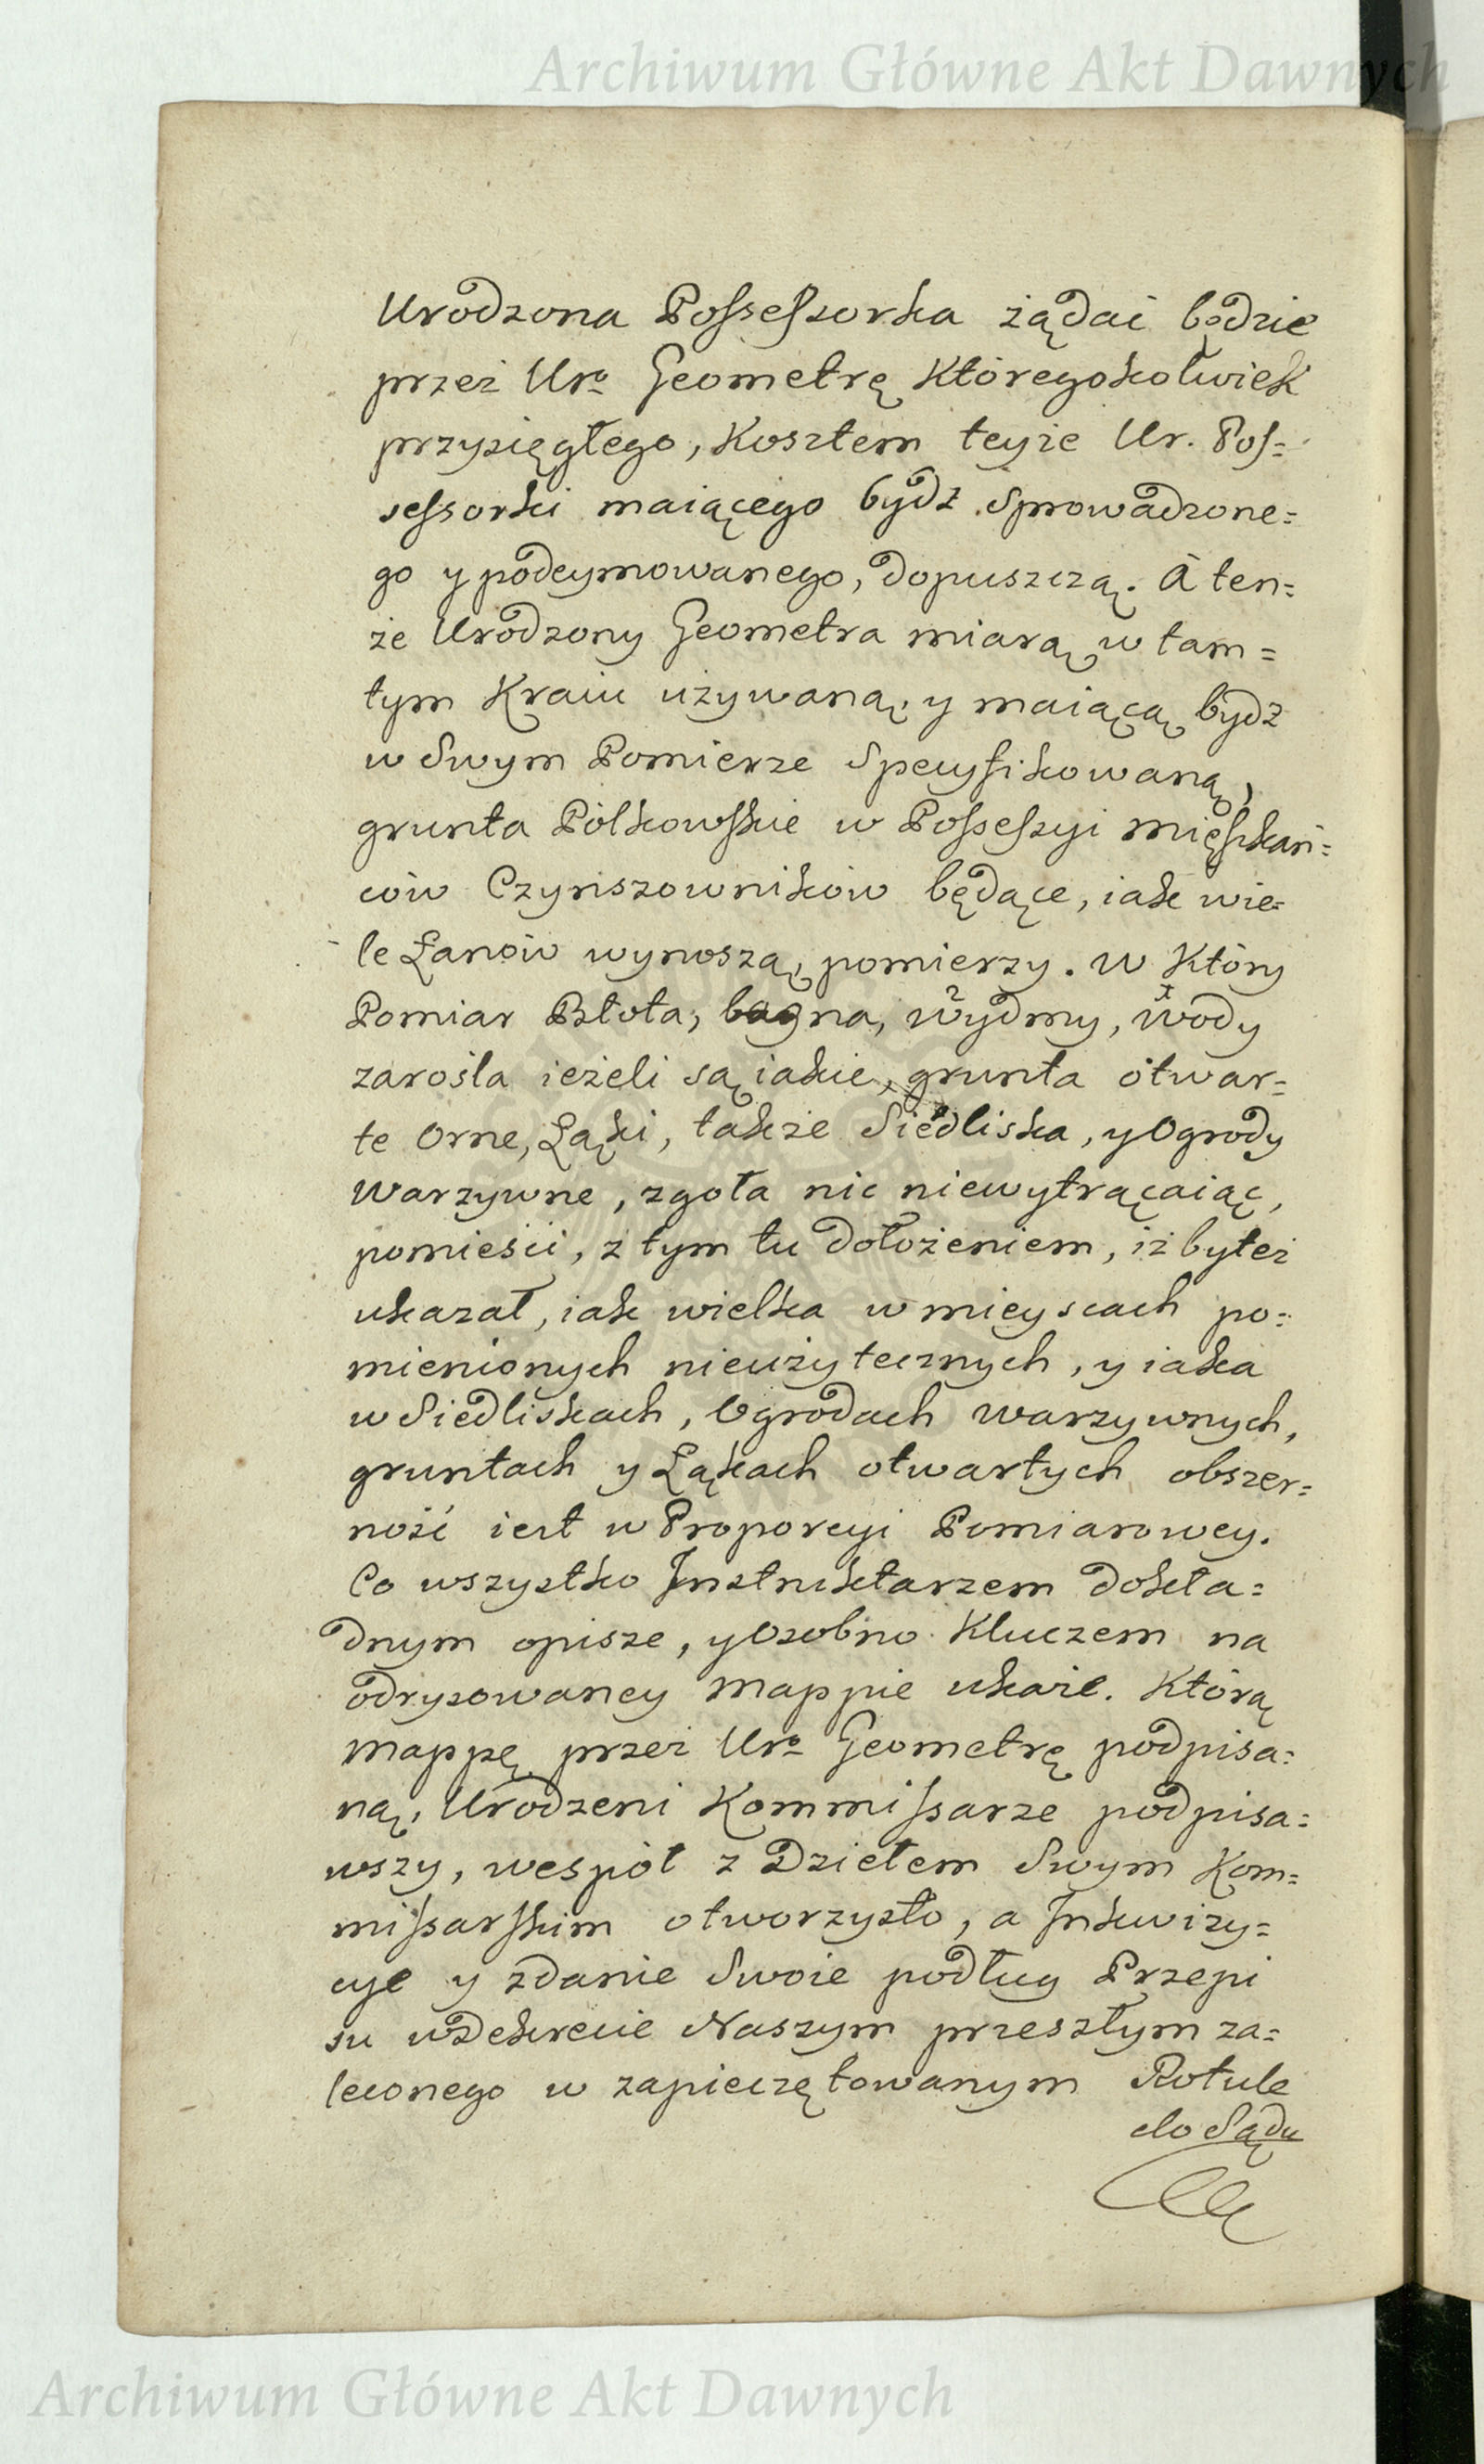 Archiwum Główne Akt Dawnych
Urodzona Possessorka żądać będzie
przez Uro Geometrę któregokolwiek
przysięgłego, Kosztem teyże Ur. Pos=
sessorki maiącego bydź Sprowadzone=
go y podeymowanego, dopuszczą. A ten=
że Urodzony Geometra miarą w tam=
tym Kraiu używaną, y maiącą bydź
w Swym Pomierze Specyfikowaną,
grunta Pólkowskie w Possessyi mięszkań=
ców Czynszowników będące, iak wie=
le Łanów wynoszą, pomierzy. W Który
Pomiar Błota, bagna, wydmy, wody
zarośla ieżeli są iakie, grunta otwar=
te Orne, Łąki, także Siedliska, y Ogrody
Warzywne, zgoła nic niewytrącaiąc,
pomieści, z tym tu dołożeniem, iż by też
ukazał, iak wielka w mieyscach po=
mienionych nieużytecznych, y iaka
w Siedliskach, Ogrodach warzywnych,
gruntach y Łąkach otwartych obszer=
ność iest w Proporcyi Pomiarowey.
Co wszystko Instruktarzem dokła=
dnym opisze, y Osobno Kluczem na
odrysowaney mappie ukaże. Którą
mappę przez Uro Geometrę podpisa=
ną, Urodzeni Kommissarze podpisa=
wszy, wespół z Dziełem Swym Kom=
missarskim otworzysto, a Inkwizy=
cye y zdanie Swoie podług Przepi
su w Dekrecie Naszym przeszłym za=
leconego w zapieczętowanym Rotule
do Sądu
Archiwum Główne Akt Dawnych